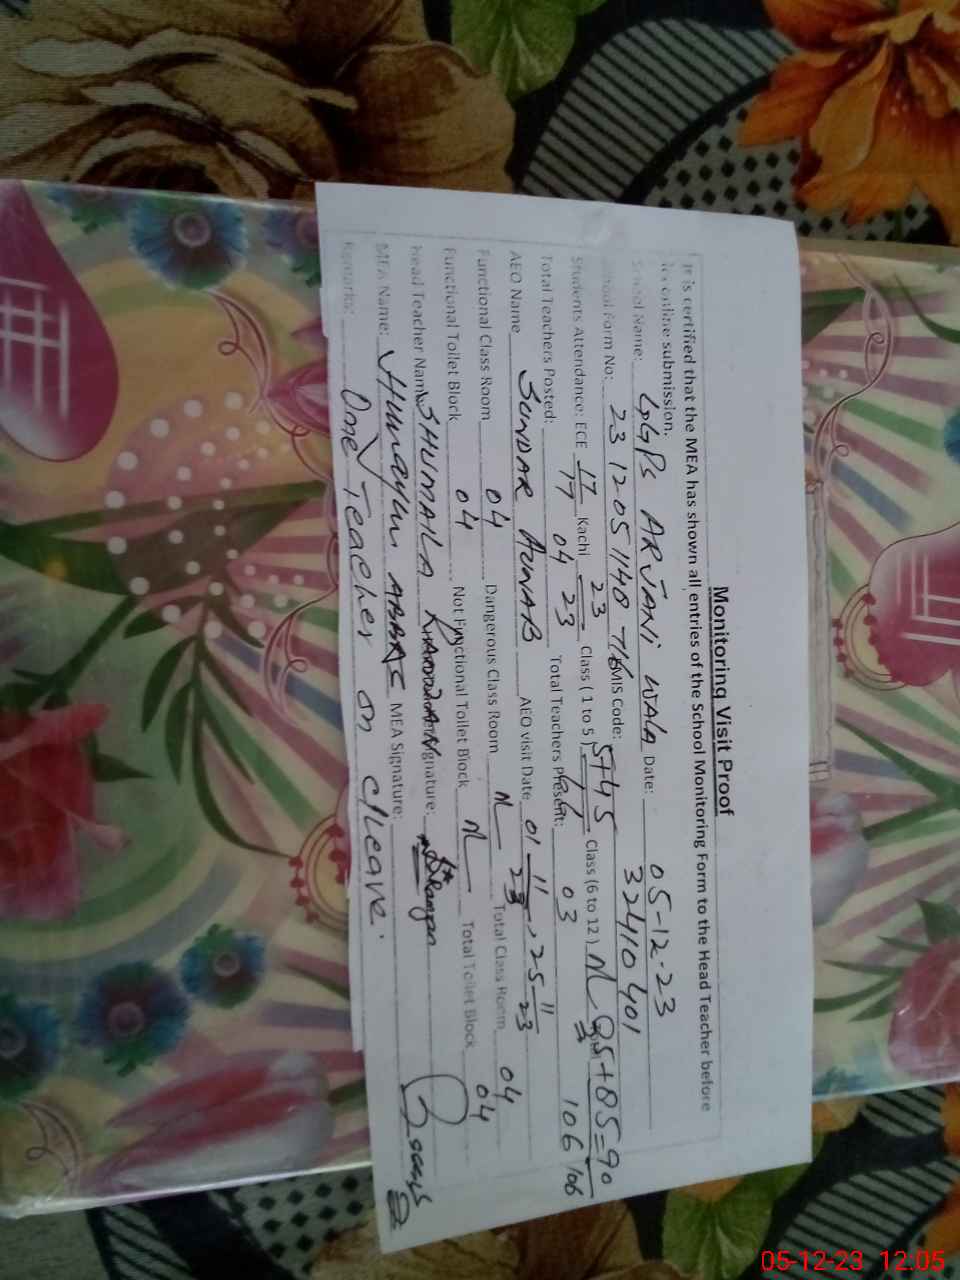 Monitoring Visit Proof
It is certified that the MEA has shown all entries of the School Monitoring Form to the Head Teacher before
its online submission.
School Name: GGPS ARJANI WALA Date: 05-12-23
School Form No: 23 1205 1140 EMIS Code: 32410401
Students Attendance: ECE 17/17 Kachi 23/23 Class (1 to 5) Class (6 to 12) 106/106
Total Teachers Posted: 04 Total Teachers Present: 03
AEO Name SUNDAR AEO visit Date 01-11-23, 25-11-23
Functional Class Room 04 Dangerous Class Room Total Class Room 04
Functional Toilet Block 04 Not Functional Toilet Block Total Toilet Block 04
Head Teacher Name SHUMAILA Signature:
MEA Name: HUMAYUN ABBAS MEA Signature:
Remarks: One Teacher on c/Leave.
05-12-23 12.05